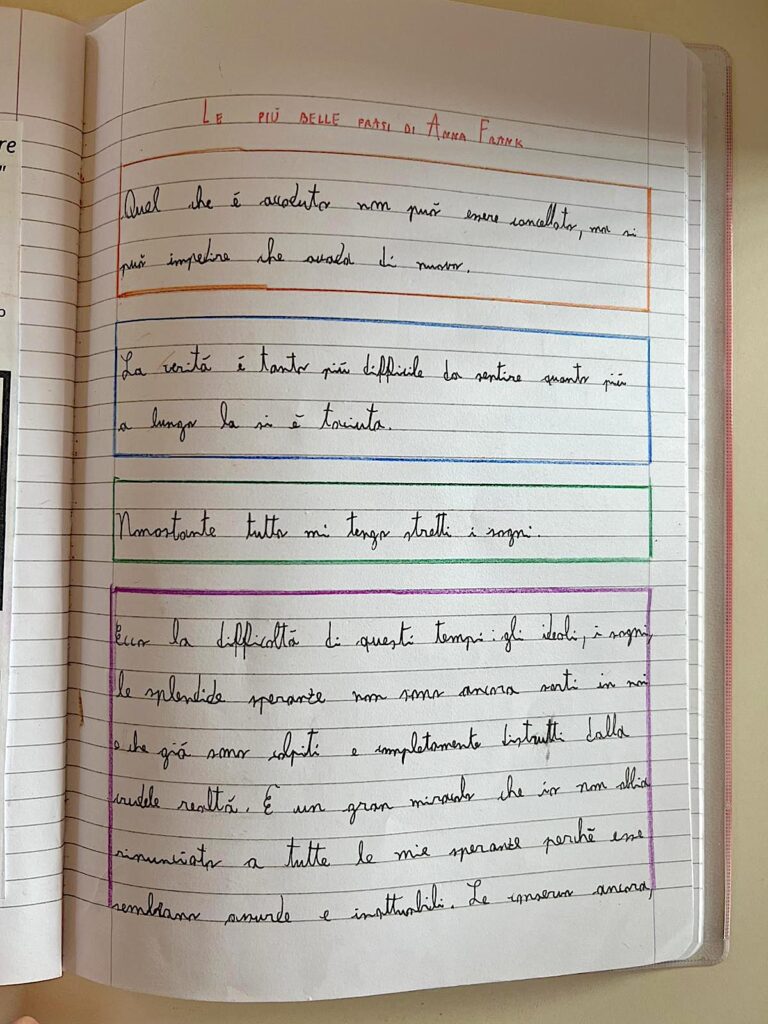 re
"
o
Le più belle frasi di Anna Frank
Quel che é accaduto non può essere cancellato, ma si
può impedire che accada di nuovo.
La verità é tanto più difficile da sentire quanto più
a lungo la si é taciuta.
Nonostante tutto mi tengo stretti i sogni.
Ecco la difficoltà di questi tempi: gli ideali, i sogni,
le splendide speranze non sono ancora sorti in noi
e che già sono colpiti e completamente distrutti dalla
crudele realtà. É un gran miracolo che io non abbia
rinunciato a tutte le mie speranze perché esse
sembrano assurde e inattuabili. Le conservo ancora,